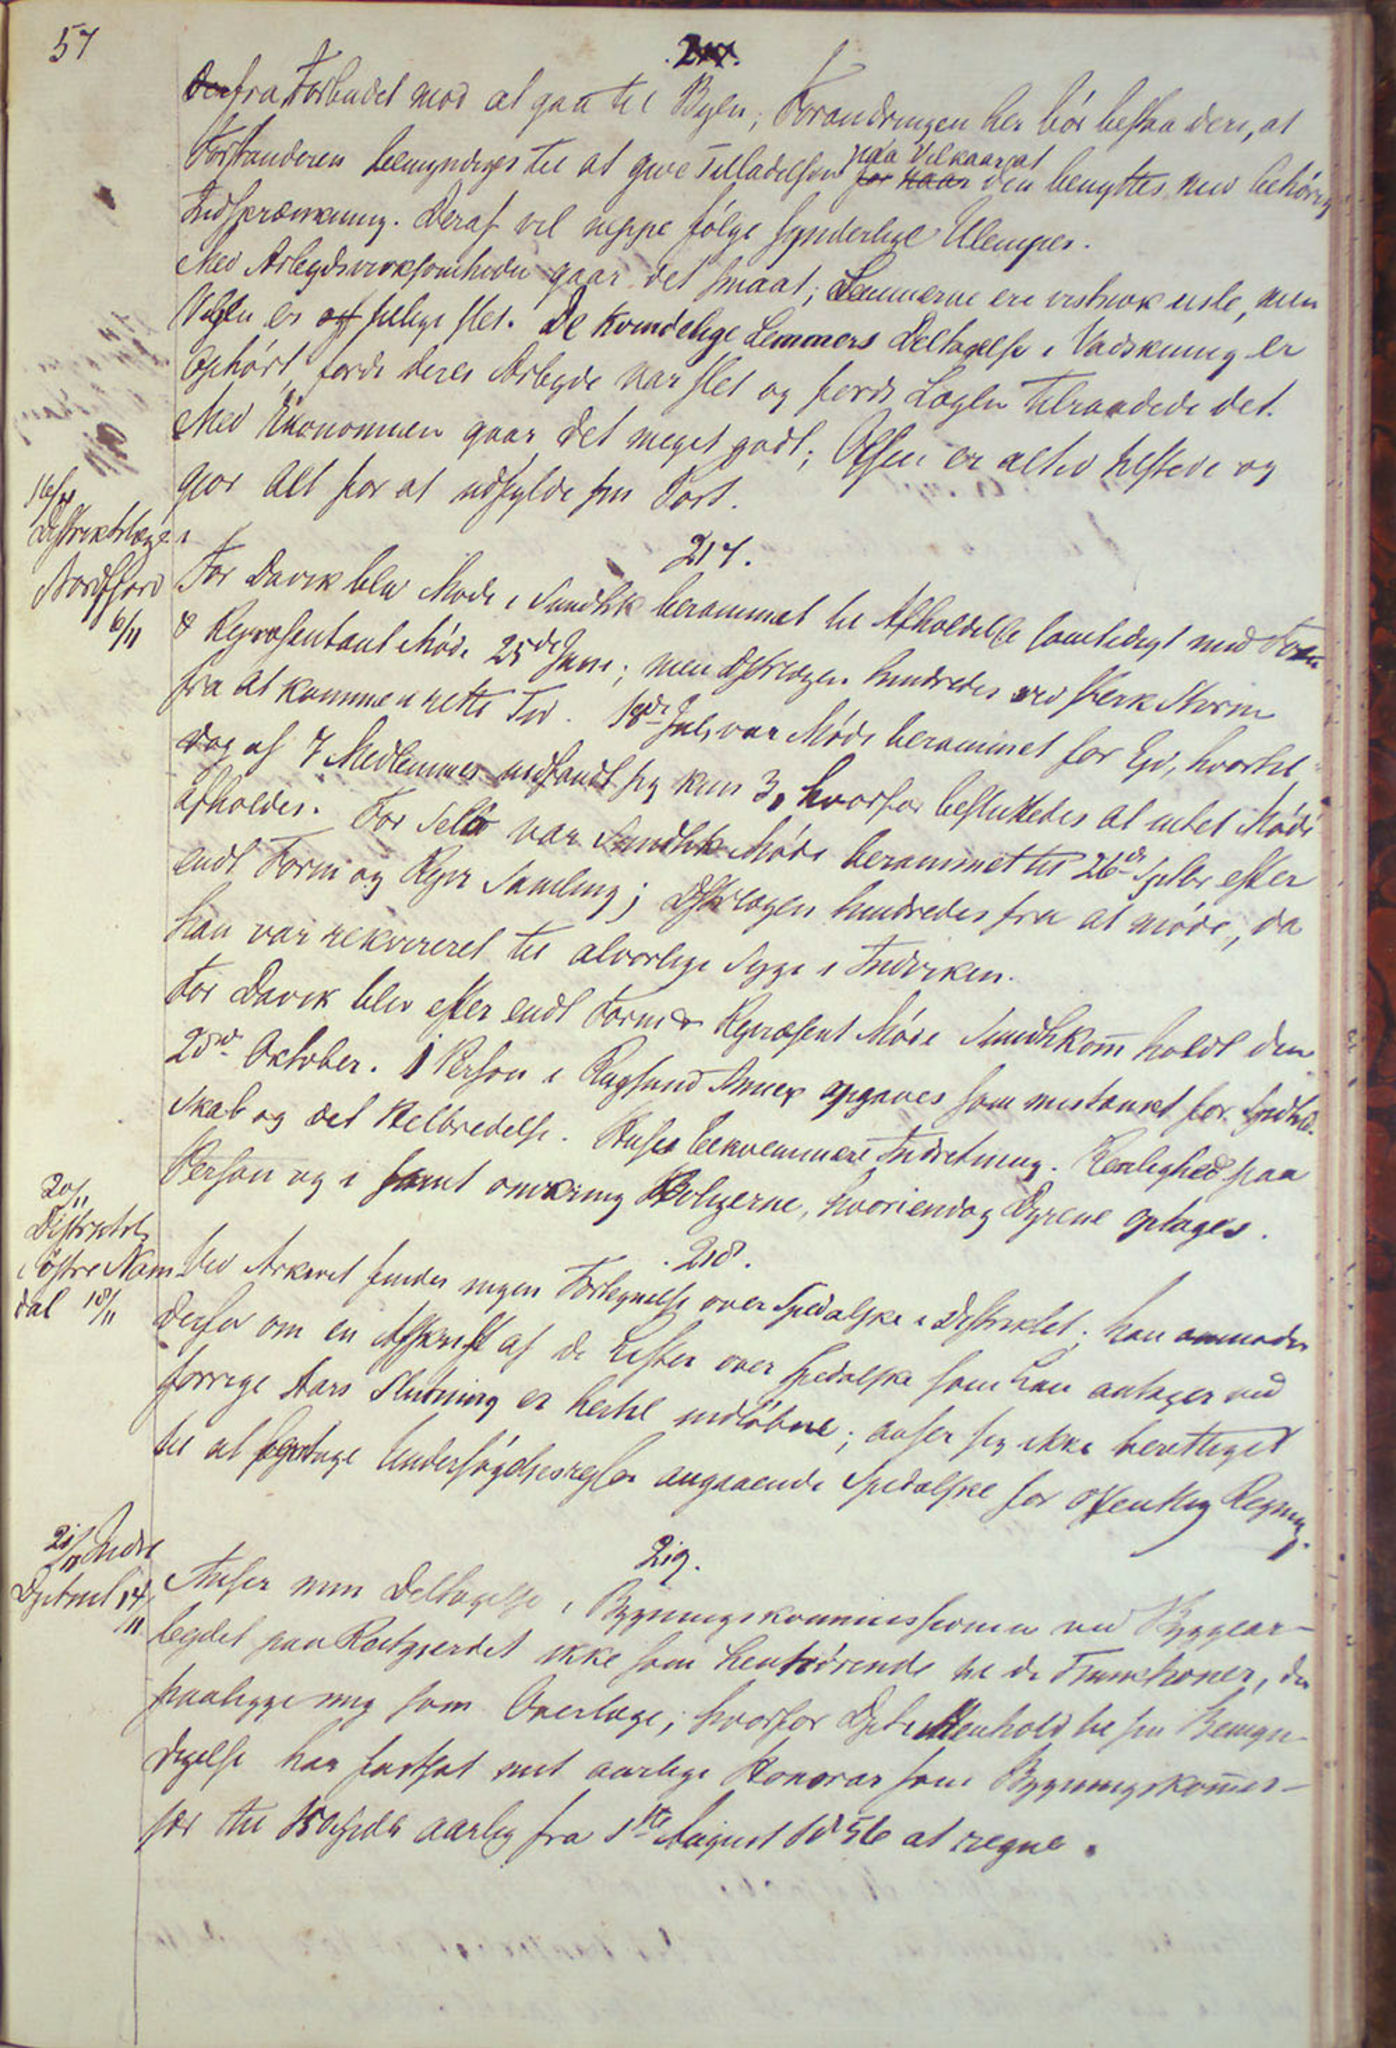 57
217.
Den fra Forbudet mod at gaa til Byen; Forandringen her bör bestaa deri, at
Forstanderen bemyndiges til at give Tilladelsen paa Vilkaar at
for naar den benyttes med behörig
Indskrænkning. Deraf vil neppe fölge synderlige Ulemper.
Med Arbejdsvirksomheden gaar det smaat; Lemmerne ere vistnok usle, men
Viljen er og felige slet. De kvindelige Lemmers Deltagelse i Vadskning er
Ophört, fordi deres Arbejde var slet og fordi Lægen tilraadede det.
Med Ökonomien gaar det meget godt; Olsen er altid tilstede og
gior Alt for at udfylde sin Post.
16/11
Distriktslægen i
Nordfjord
6/11
217.
For Davik blev Möde i Sundhk berammet til Afholdelse samtidigt med Form
& Repræsentant Möde 25de Juni; men Dstrlægen hindredes ved stærk Storm
fra at komme i rette Tid. 18de Juli var Möde berammet for Eid, hvortil
dog af 7 Medlemmer indfandt sig kun 3, hvorfor besluttedes at intet Möde
afholdes. For Selö var Sundhk Möde berammet til 26de Septbr efter
endt Form og Repr Samling; Dstrlægen hindredes fra at möde, da
han var rekvireret til alvorlige Syge i Indviken.
For Davik blev efter endt Form & Repræsent Möde Sundhkom̅ holdt den
23de Oktober. 1 Person i Rugsund Annex opgaves som mistænkt for Spedalsk.
Skab og det Helbredelse. Huses bekvemmere Indretning. Renlighed paa
Person og i samt omkring Boligerne, hvoriendog Dyrene optages.
20/11
Distriktsl
i östre Nam
dal 18/11
218.
Ved Arkivet findes ingen Fortegnelse over Spedalske i Distriktet; han anmoder
derfor om en Afskrift af de Lister over Spedalske som han antager ved
forrige Aars Slutning er hertil indlöbne; anser sig ikke berettiget
til at foretage Undersögelsesreiser angaaende Spedalske for offentlig Regning.
21/11 Indre
Dptmt 14/11
219.
Anser min Deltagelse i Bygningskommissionen ved Byggear-
bejdet paa Reitgjerdet ikke som henhörende til de Funktioner, der
paaligge mig som Overlæge; hvorfor Dpt i Henhold til sin Bemyn-
digelse har fastsat mit aarlige Honorar som Bygningskom̅is-
sær til 150 Spdlr aarlig fra 1ste August 1856 at regne.